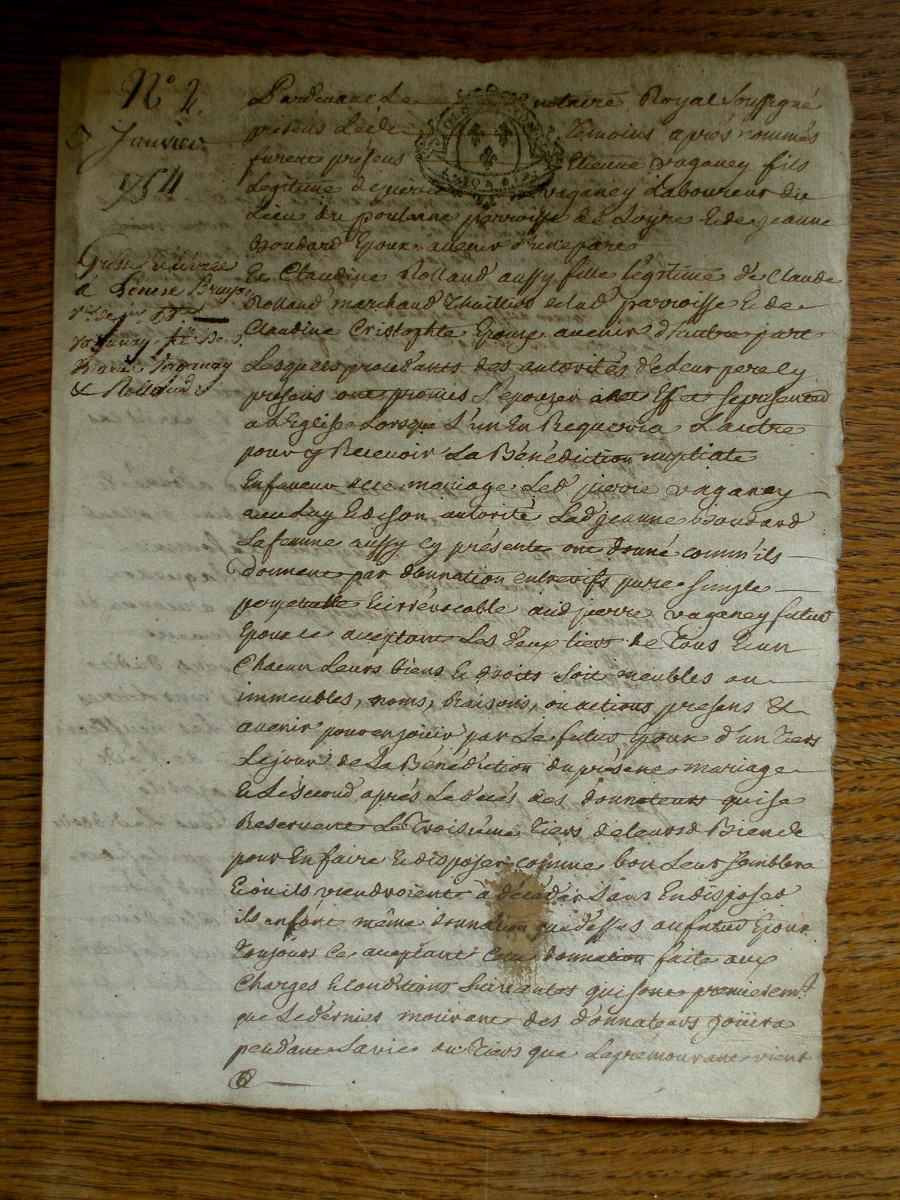 N° 2.
Janvier
1754
Grosse délivrée
a
Vaganay
& Rolland
Pardevant Le notaire Royal Soussigné
présens Lesd temoins après nommés
furent présens Etienne vaganey fils
Legitime de pierre vaganey Laboureur du
Lieu de poulanne parroisse de Soyre & de jeanne
Boudard Epoux avenir d'une part
Et Claudine Rolland aussy fille légitime de Claude
Rolland marchand Thuillier de lad parroisse & de
Claudine Cristophle Epouse avenir d'autre part
Lesquels procédants des autorités de Leur pere cy
présens ont promis S'epouzer a cet Effet se présenter
a L'Eglise Lorsque L'un En Requerrra L'autre
pour y Recevoir La Bénédiction nuptiale
En faveur de ce mariage Led pierre vaganey
avec Luy & de son autorité Lad jeanne Boudard
La femme aussy cy présente ont donné comm'ils
donnent par donnation entrevifs pure simple
perpetuelle & irrévocable aud pierre vaganey futur
Epoux ce aceptant Les deux tiers de Tous & un
Chacun Leurs biens & droits soit meubles ou
immeubles, noms, Raisons, ou actions présens &
avenir pour en joüir par Le futur Epoux d'un Tiers
Le jour de La Bénédiction du présent mariage
Et Le Second après Le décés des donnateurs qui se
Reservent Le Troisième Tiers de leursd Biens &
pour En faire & disposer comme bon Leur semblera
& où ils viendroient a décéder sans En disposer
ils en font même donnation que dessus au futur Epoux
Toujours ce aceptant Cette donnation faite aux
Charges & conditions Suivantes qui sont premierem.t
que Le dernier mourant des donnateurs joüira
pendant Sa vie du Tiers que Le prémourant vient